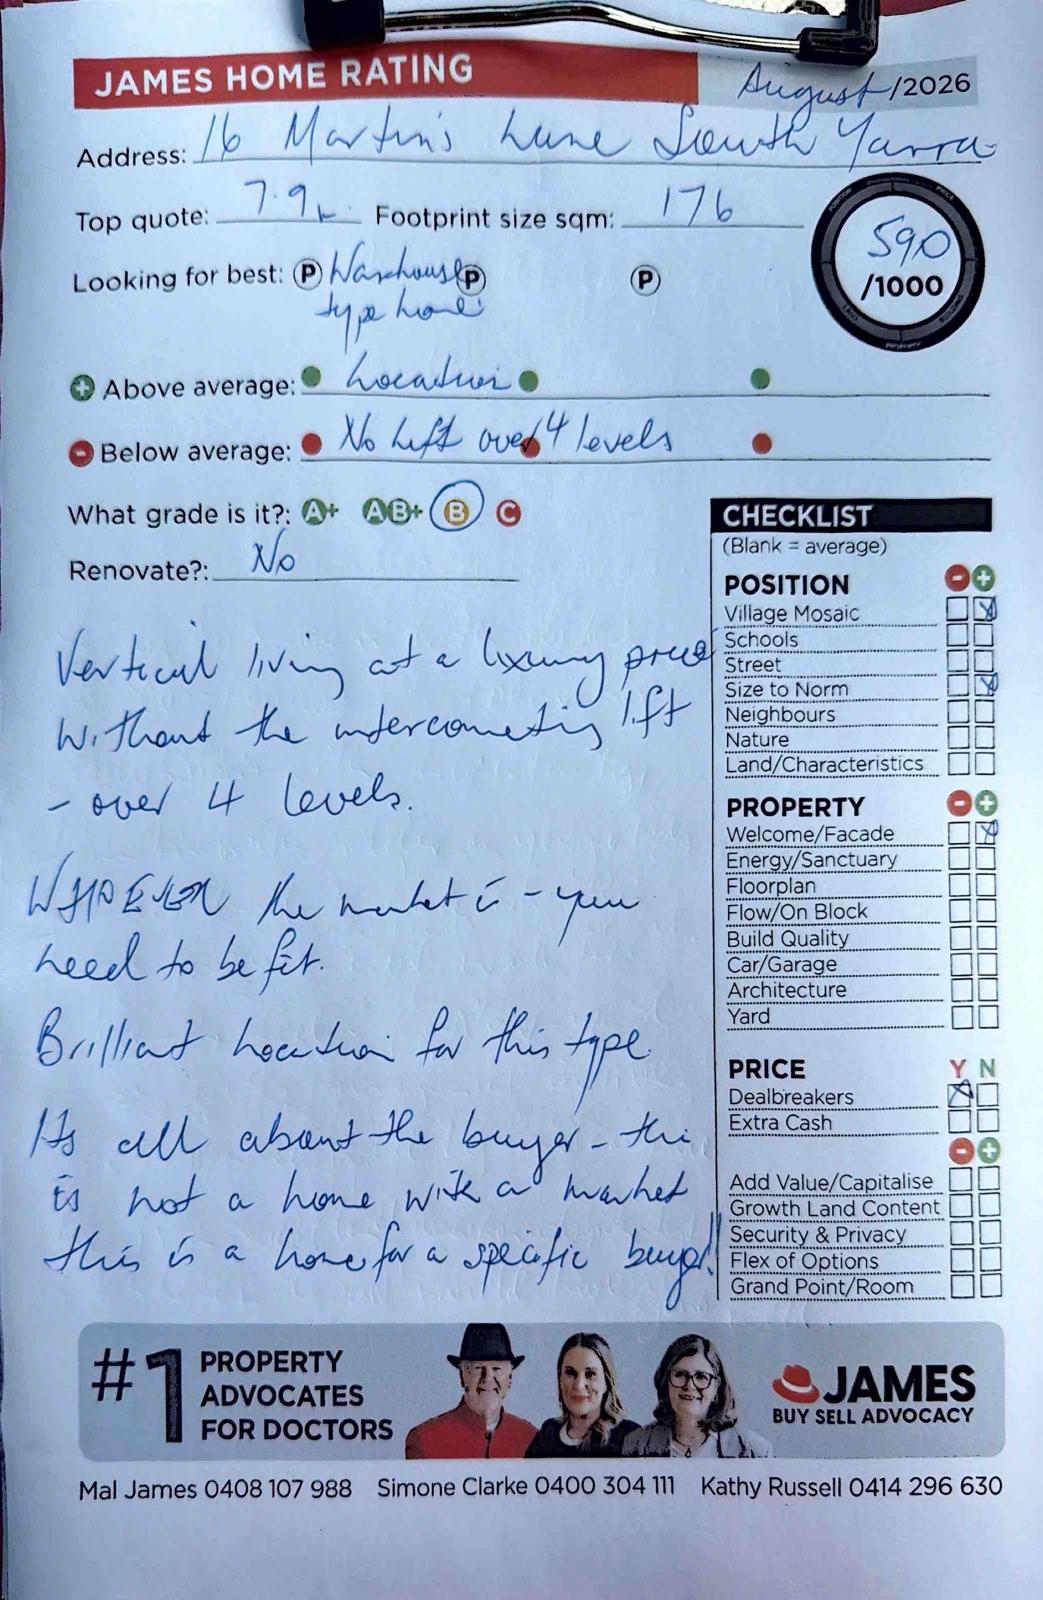 JAMES HOME RATING
August /2026
Address: 16 Martin's Lane South Yarra
Top quote: 7.9 Footprint size sqm: 176
590
/1000
Looking for best: P Warehouse P P
type home
Above average: Location
Below average: No Lift over 4 levels
What grade is it?: A+ AB+ B C
Renovate?: No
Vertical living at a luxury price
Without the interconnecting lift
- over 4 levels.
the market is - you
need to be fit.
Brilliant Location for this type.
Its all about the buyer - this
is not a home with a market
this is a home for a specific buyer!!
CHECKLIST
(Blank = average)
POSITION - +
Village Mosaic
Schools
Street
Size to Norm
Neighbours
Nature
Land/Characteristics
PROPERTY - +
Welcome/Facade
Energy/Sanctuary
Floorplan
Flow/On Block
Build Quality
Car/Garage
Architecture
Yard
PRICE Y N
Dealbreakers
Extra Cash
- +
Add Value/Capitalise
Growth Land Content
Security & Privacy
Flex of Options
Grand Point/Room
#1 PROPERTY
ADVOCATES
FOR DOCTORS
JAMES
BUY SELL ADVOCACY
Mal James 0408 107 988 Simone Clarke 0400 304 111 Kathy Russell 0414 296 630